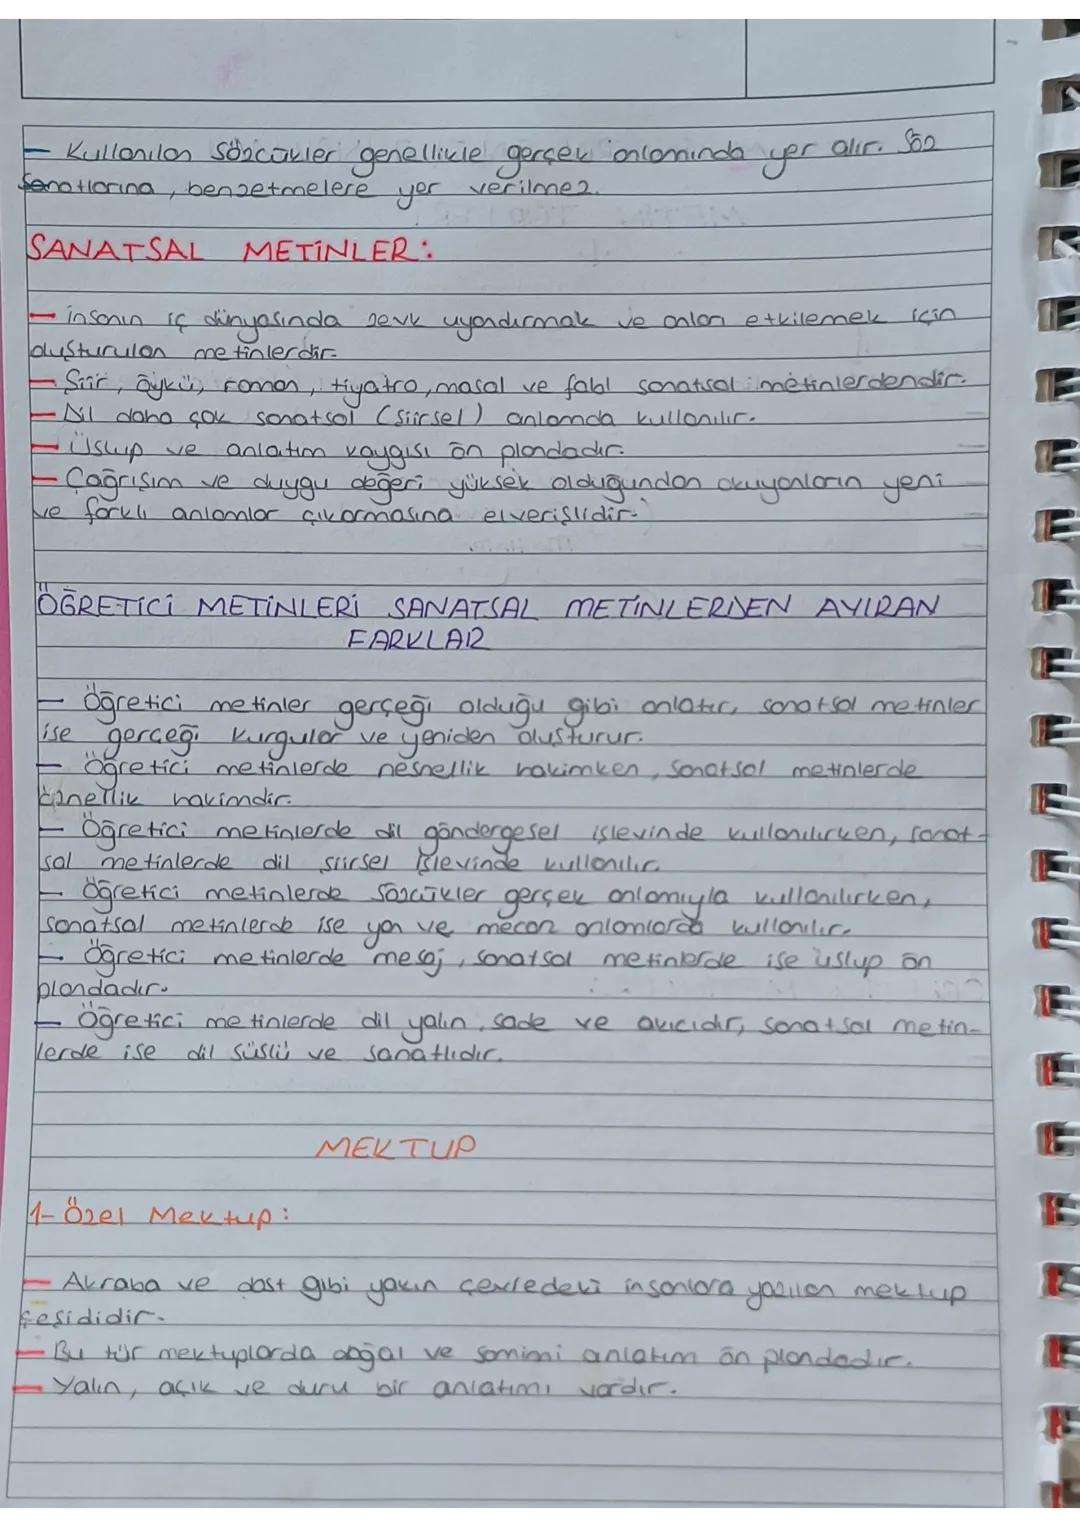 - Kullanılan sözcükler genellikle gerçek anlamında yer alır. Söz
sanatlarına, benzetmelere yer verilmez.
SANATSAL METİNLER:
- İnsanın iç dünyasında zevk uyandırmak ve onları etkilemek için
oluşturulan metinlerdir.
- Şiir, öykü, roman, tiyatro, masal ve fabl sanatsal metinlerdendir.
- Dil daha çok sanatsal (şiirsel) anlamda kullanılır.
- Üslup ve anlatım kaygısı ön plandadır.
- Çağrışım ve duygu değeri yüksek olduğundan okuyanların yeni
ve farklı anlamlar çıkarmasına elverişlidir.
ÖĞRETİCİ METİNLERİ SANATSAL METİNLERDEN AYIRAN
FARKLAR
- Öğretici metinler gerçeği olduğu gibi anlatır, sanatsal metinler
ise gerçeği kurgular ve yeniden oluşturur.
- Öğretici metinlerde nesnellik hakimken, sanatsal metinlerde
öznellik hakimdir.
- Öğretici metinlerde dil göndergesel işlevinde kullanılırken, sanat-
sal metinlerde dil şiirsel işlevinde kullanılır.
- Öğretici metinlerde sözcükler gerçek anlamıyla kullanılırken,
sanatsal metinlerde ise yan ve mecaz anlamlarda kullanılır.
- Öğretici metinlerde mesaj, sanatsal metinlerde ise üslup ön
plandadır.
- Öğretici metinlerde dil yalın, sade ve akıcıdır, sanatsal metin-
lerde ise dil süslü ve sanatlıdır.
MEKTUP
1- Özel Mektup:
- Akraba ve dost gibi yakın çevredeki insanlara yazılan mektup
çeşididir.
- Bu tür mektuplarda doğal ve samimi anlatım ön plandadır.
- Yalın, açık ve duru bir anlatımı vardır.